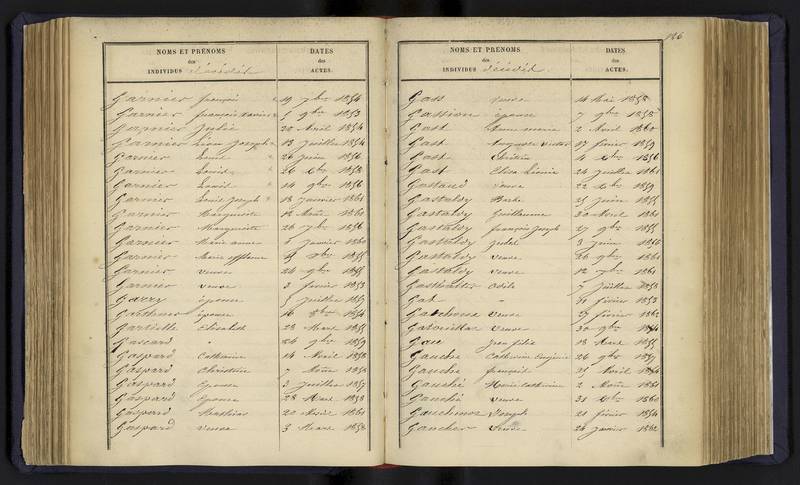 NOMS ET PRÉNOMS
des
INDIVIDUS décédés
DATES
des
ACTES.
Garnier françois 19 7bre 1854
Garnier françois xavier 5 9bre 1853
Garnier Julie 20 Avril 1854
Garnier Léon Joseph 13 Juillet 1854
Garnier Louis 26 Juin 1856
Garnier Louis 26 Xbre 1858
Garnier Louis 14 9bre 1856
Garnier Louis Joseph 18 Janvier 1861
Garnier Marguerite 12 Août 1860
Garnier Marguerite 26 7bre 1856
Garnier Marie anne 5 Janvier 1860
Garnier Marie 1855
Garnier veuve 24 9bre 1855
Garnier veuve 3 février 1853
Garry épouse 5 Juillet 1857
épouse 16 8bre 1854
Elisabeth 28 Mars 1855
Gascard " 24 9bre 1859
Gaspard Catherine 14 Avril 1858
Gaspard Christine 7 Août 1858
Gaspard épouse 3 Juillet 1857
Gaspard épouse 28 Mars 1858
Gaspard Mathias 20 Août 1861
Gaspard veuve 3 Mars 1858
126
NOMS ET PRÉNOMS
des
INDIVIDUS décédés
DATES
des
ACTES.
Gass veuve 14 Mai 1858
Gassion épouse 7 9bre 1858
Gast Anne marie 2 Avril 1860
Gast Auguste Victor 17 février 1859
Gast 4 Xbre 1856
Gast Elisa Léonie 24 Juillet 1861
Gastaud veuve 22 Xbre 1859
Gastaldy Barbe 25 Juin 1855
Gastaldy Guillaume 30 Avril 1861
Gastaldy françois Joseph 27 9bre 1855
Gastaldy 3 Juin 1856
Gastaldy veuve 26 9bre 1861
Gastaldy veuve 12 1861
Odile 7 Juillet 1853
" 11 février 1853
veuve 27 février 1862
veuve 30 9bre 1854
18 Mars 1855
Gauche Catherine Eugénie 26 9bre 1857
Gauche françois 25 Avril
Gauché Marie Catherine 2 Août 1861
Gauché veuve 31 Xbre 1860
Joseph 21 février 1854
Gaucher veuve 24 Janvier 1862